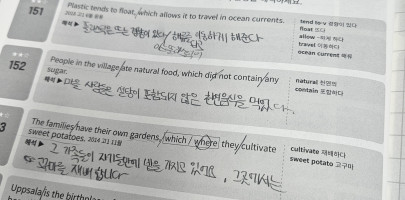 151
Plastic tends to float, which allows it to travel in ocean currents.
해석▶
tend to-v 경향이 있다
float 뜨다
allow ~하게 하다
travel 이동하다
ocean current 해류
152
People in the village ate natural food, which did not contain any
sugar.
해석▶ 마을 사람들은 설탕이 포함되지 않은 천연음식을 먹었다.
natural 천연의
contain 포함하다
3
The families have their own gardens, which / where they cultivate
sweet potatoes.
해석▶ 그 가족들이 자기들만에 가지고 있어요, 그곳에서는
재배합니다
cultivate 재배하다
sweet potato 고구마
Uppsala is the birthplace